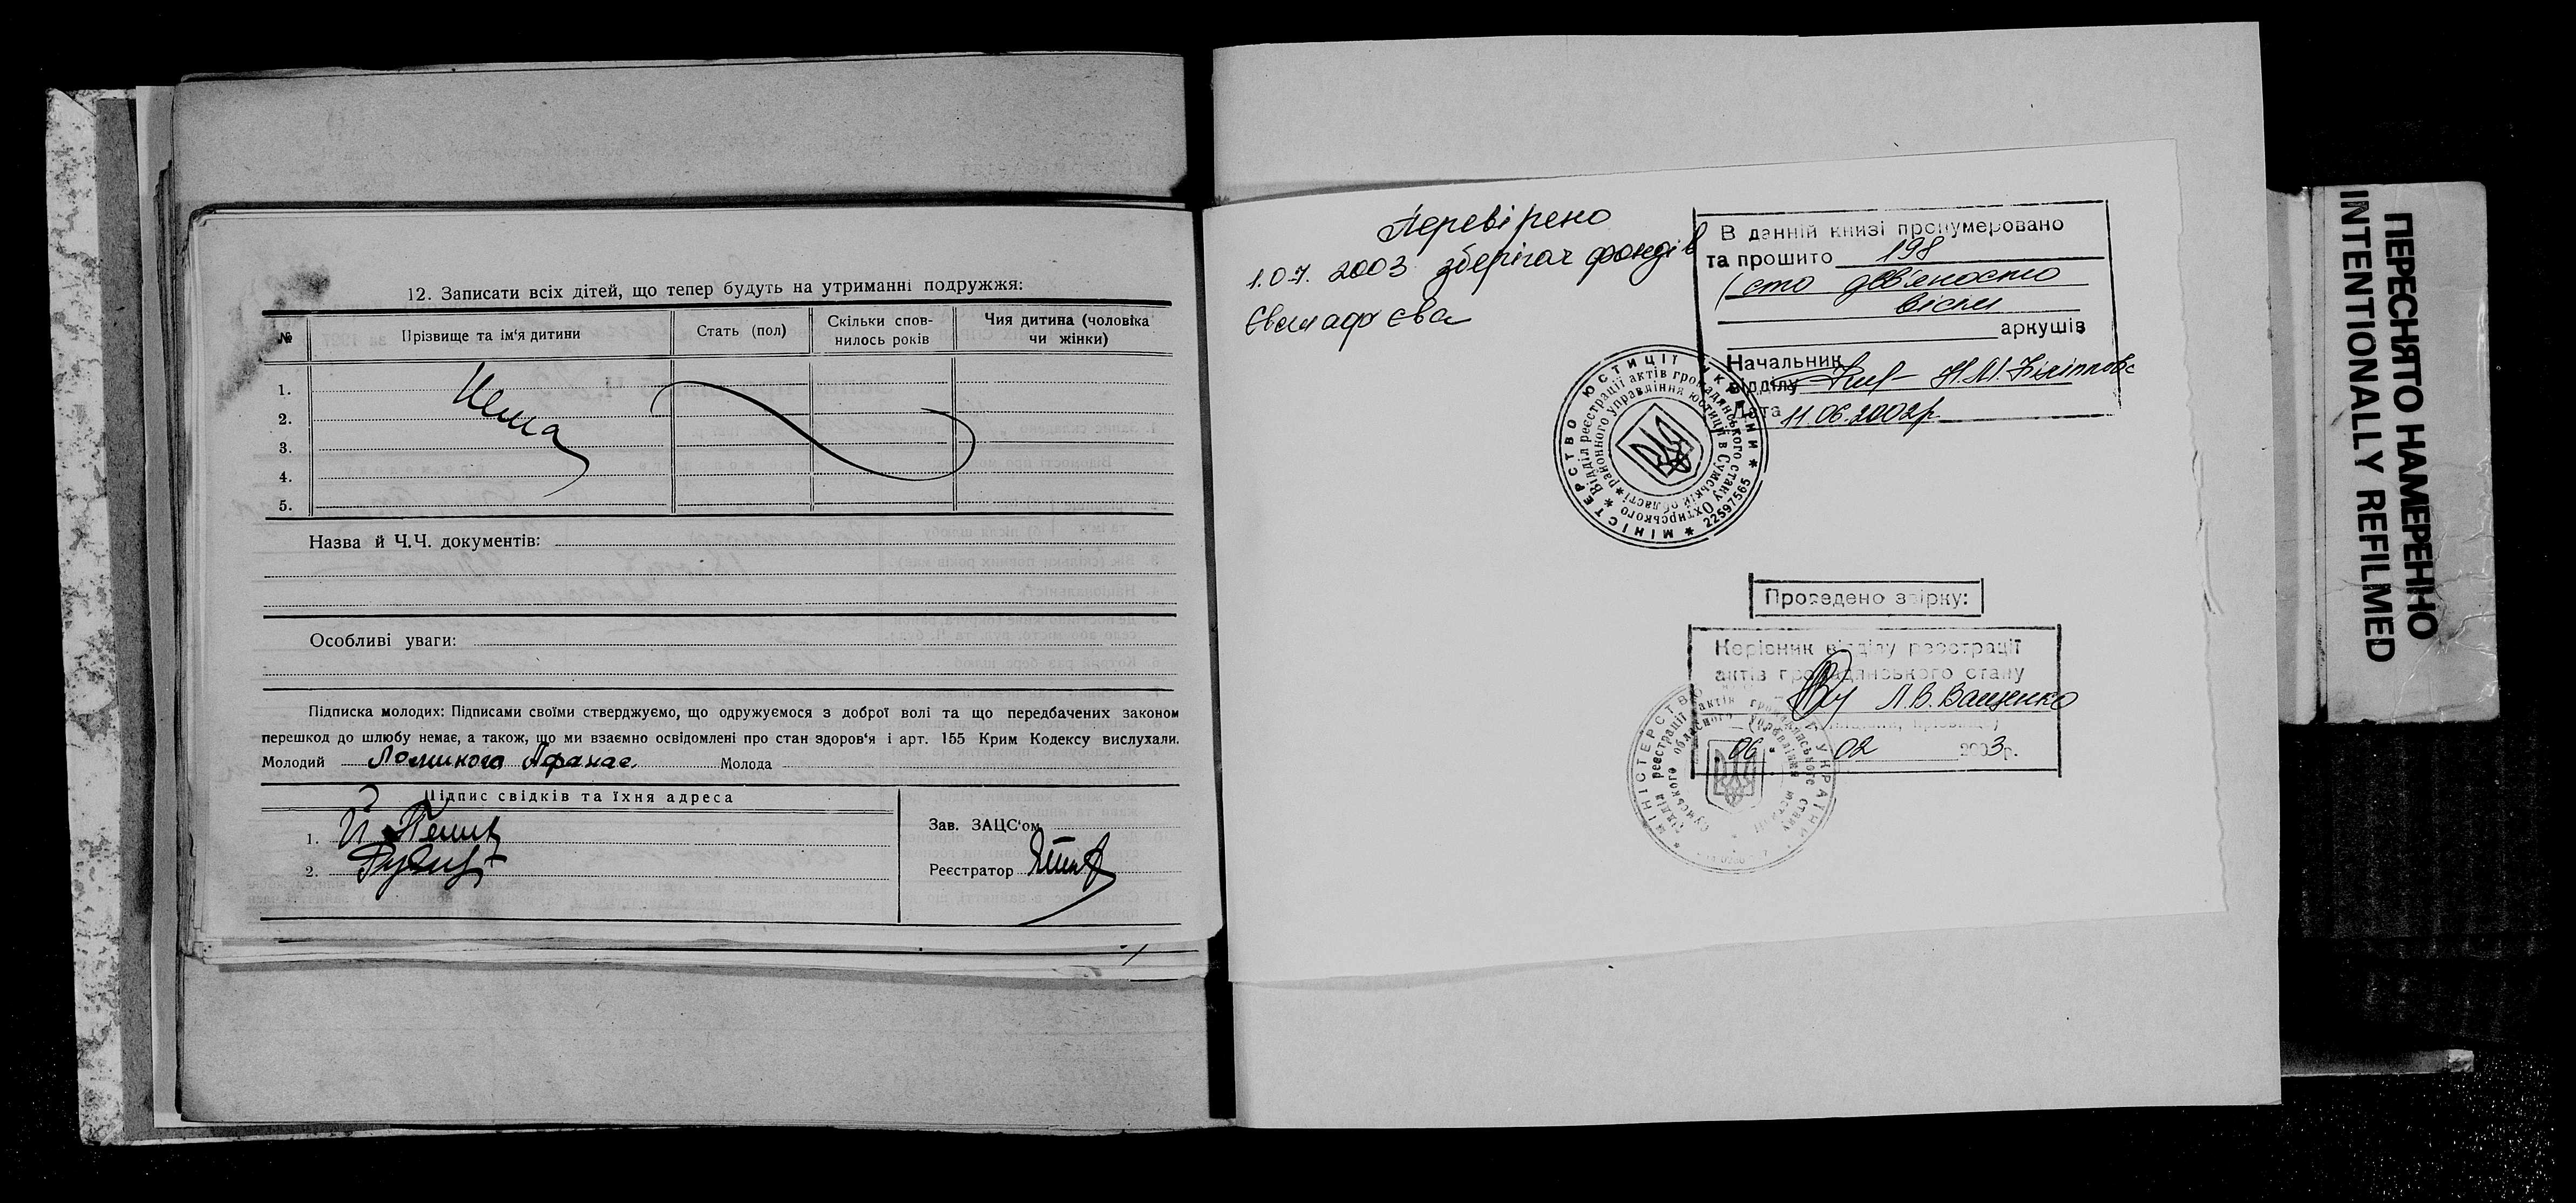 12. Записати всіх дітей, що тепер будуть на утриманні подружжя:
№ Прізвище та ім'я дитини Стать (пол) Скільки спов- Чия дитина (чоловіка
нилось років чи жінки)
1. Нема
2.
3.
4.
5.
Назва й Ч.Ч. документів:
Особливі уваги:
Підписка молодих: Підписами своїми стверджуємо, що одружуємося з доброї волі та що передбачених законом
перешкод до шлюбу немає, а також, що ми взаємно освідомлені про стан здоров'я і арт. 155 Крим Кодексу вислухали.
Молодий Афанас. Молода
Підпис свідків та їхня адреса
1.
2.
Зав. ЗАЦС'ом
Реєстратор
Перевірено
1.07.2003 зберігач фондів
В данній книзі пронумеровано
та прошито 198
(сто дев'яносто
вісім
аркушів
Начальник
відділу Н.М.
Дата 11.06.2002р.
МІНІСТЕРСТВО ЮСТИЦІЇ УКРАЇНИ * 22597565 *
Відділ реєстрації актів громадянського стану Охтирського
районного управління юстиції в Сумській області
Проведено звірку:
Керівник відділу реєстрації
актів громадянського стану
Л.В. Ващенко
06 02 2003р.
МІНІСТЕРСТВО УКРАЇНИ
Відділ реєстрації актів громадянського стану
Сумського обласного управління юстиції
ПЕРЕСНЯТО НАМЕРЕННО
INTENTIONALLY REFILMED